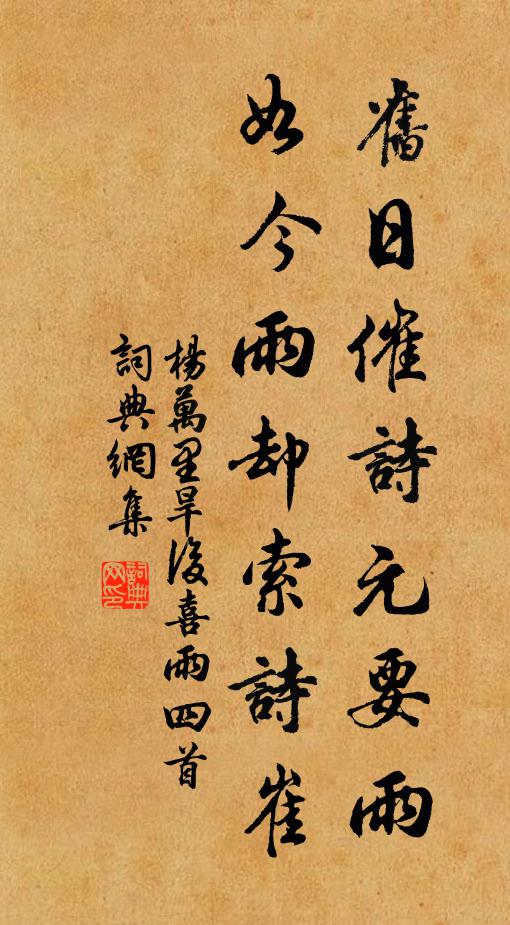 舊日催詩元要雨
如今雨却索詩崔
楊萬里旱後喜雨四首
詞典網集
詞典
网印